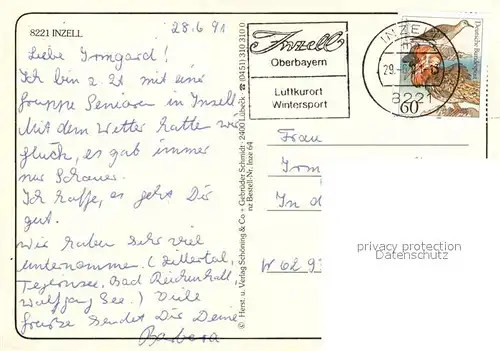 8221 INZELL
28.6.91
Liebe Irmgard!
Ich bin z. Zt mit eine
Gruppe Senioren in Inzell
Mit dem Wetter hatten wir
Glück, es gab immer
nur Schauer.
Ich hoffe, es geht Dir
gut.
Wir haben sehr viel
unternommen (Zillertal,
Tegernsee, Bad Reichenhall,
Wolfgang See.) Viele
Grüsse sendet Dir Deine
Barbara
© Herst. u. Verlag Schöning & Co · Gebrüder Schmidt · 2400 Lübeck · ☎ (0451) 310 310 0
nz Bestell-Nr. Inze 64
Inzell
Oberbayern
Luftkurort
Wintersport
INZELL
29.
8221
Deutsche Bundespost
60
Frau
Irm
In d
W 62 9
privacy protection
Datenschutz